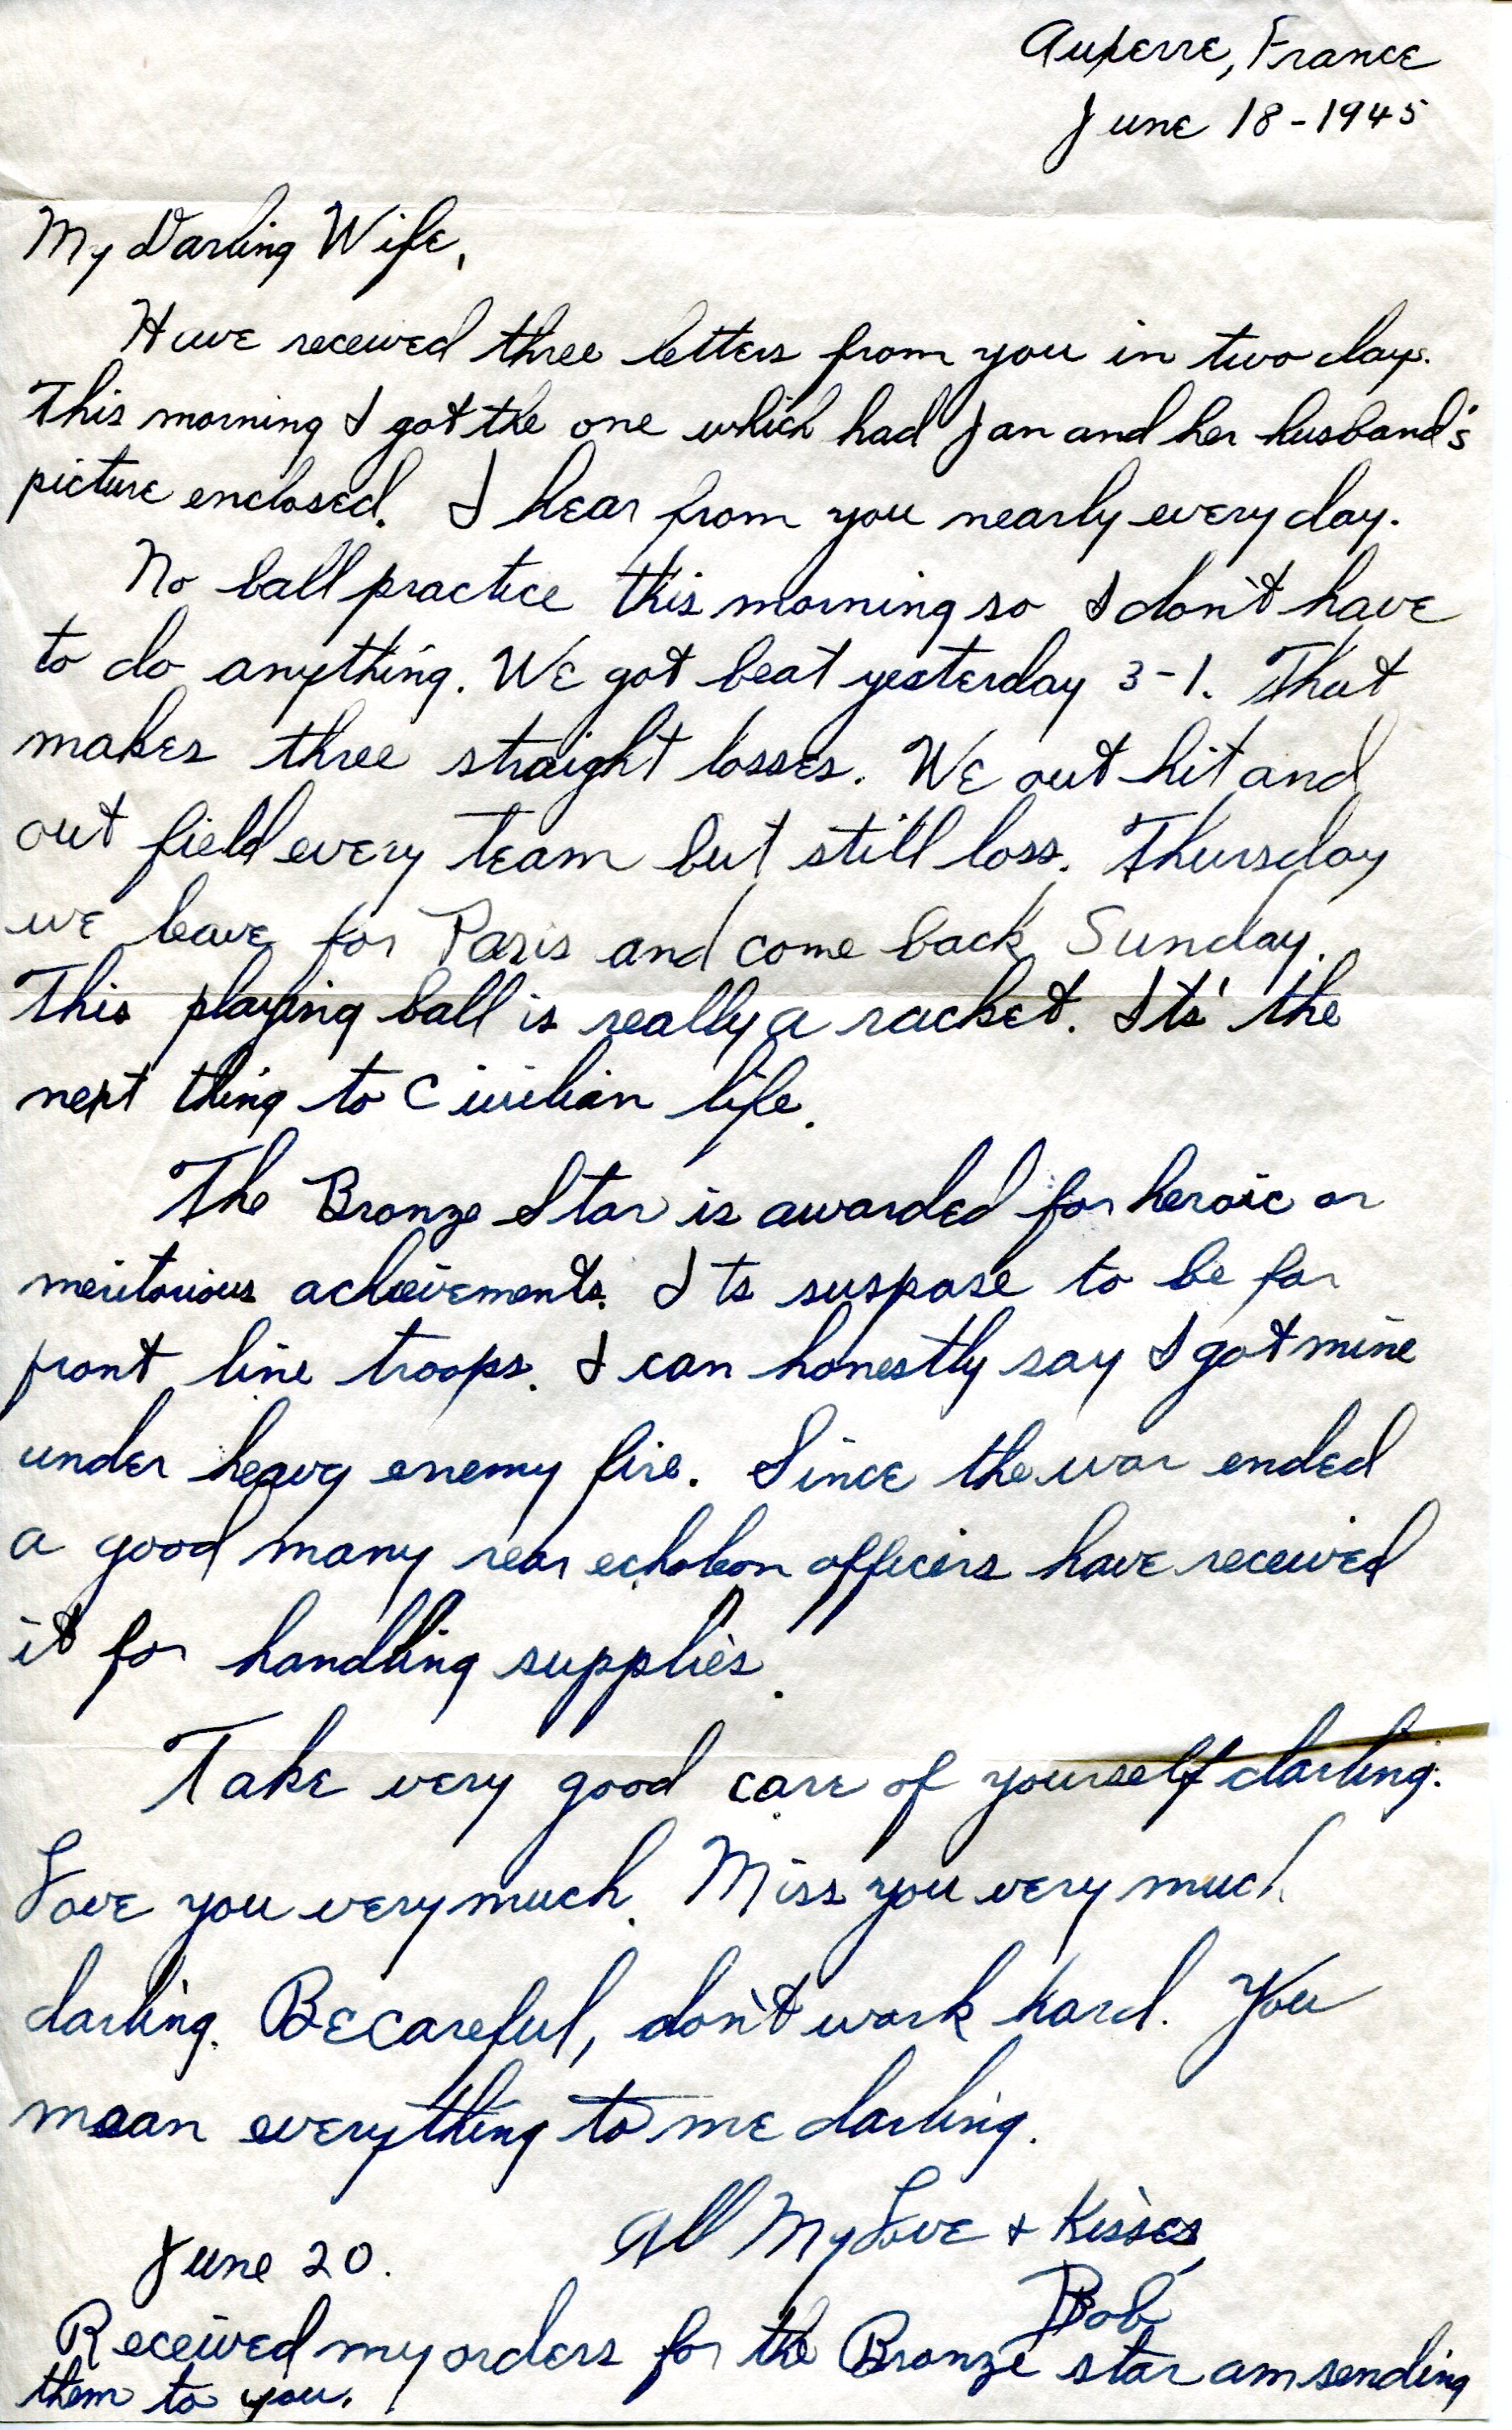 Auxerre, France
June 18-1945
My Darling Wife,
Have received three letters from you in two days.
This morning I got the one which had Jan and her husband's
picture enclosed. I hear from you nearly every day.
No ball practice this morning so I don't have
to do anything. We got beat yesterday 3-1. That
makes three straight losses. We out hit and
out field every team but still loss. Thursday
we leave for Paris and come back Sunday.
This playing ball is really a racket. Its' the
next thing to Civilian life.
The Bronze Star is awarded for heroic or
meritorious achievements. Its suspose to be for
front line troops. I can honestly say I got mine
under heavy enemy fire. Since the war ended
a good many rear echelon officers have received
it for handling supplies.
Take very good care of yourself darling.
Love you very much. Miss you very much
darling. Be careful, don't work hard. You
mean everything to me darling.
All My Love & Kisses,
Bob
June 20.
Received my orders for the Bronze star am sending
them to you.